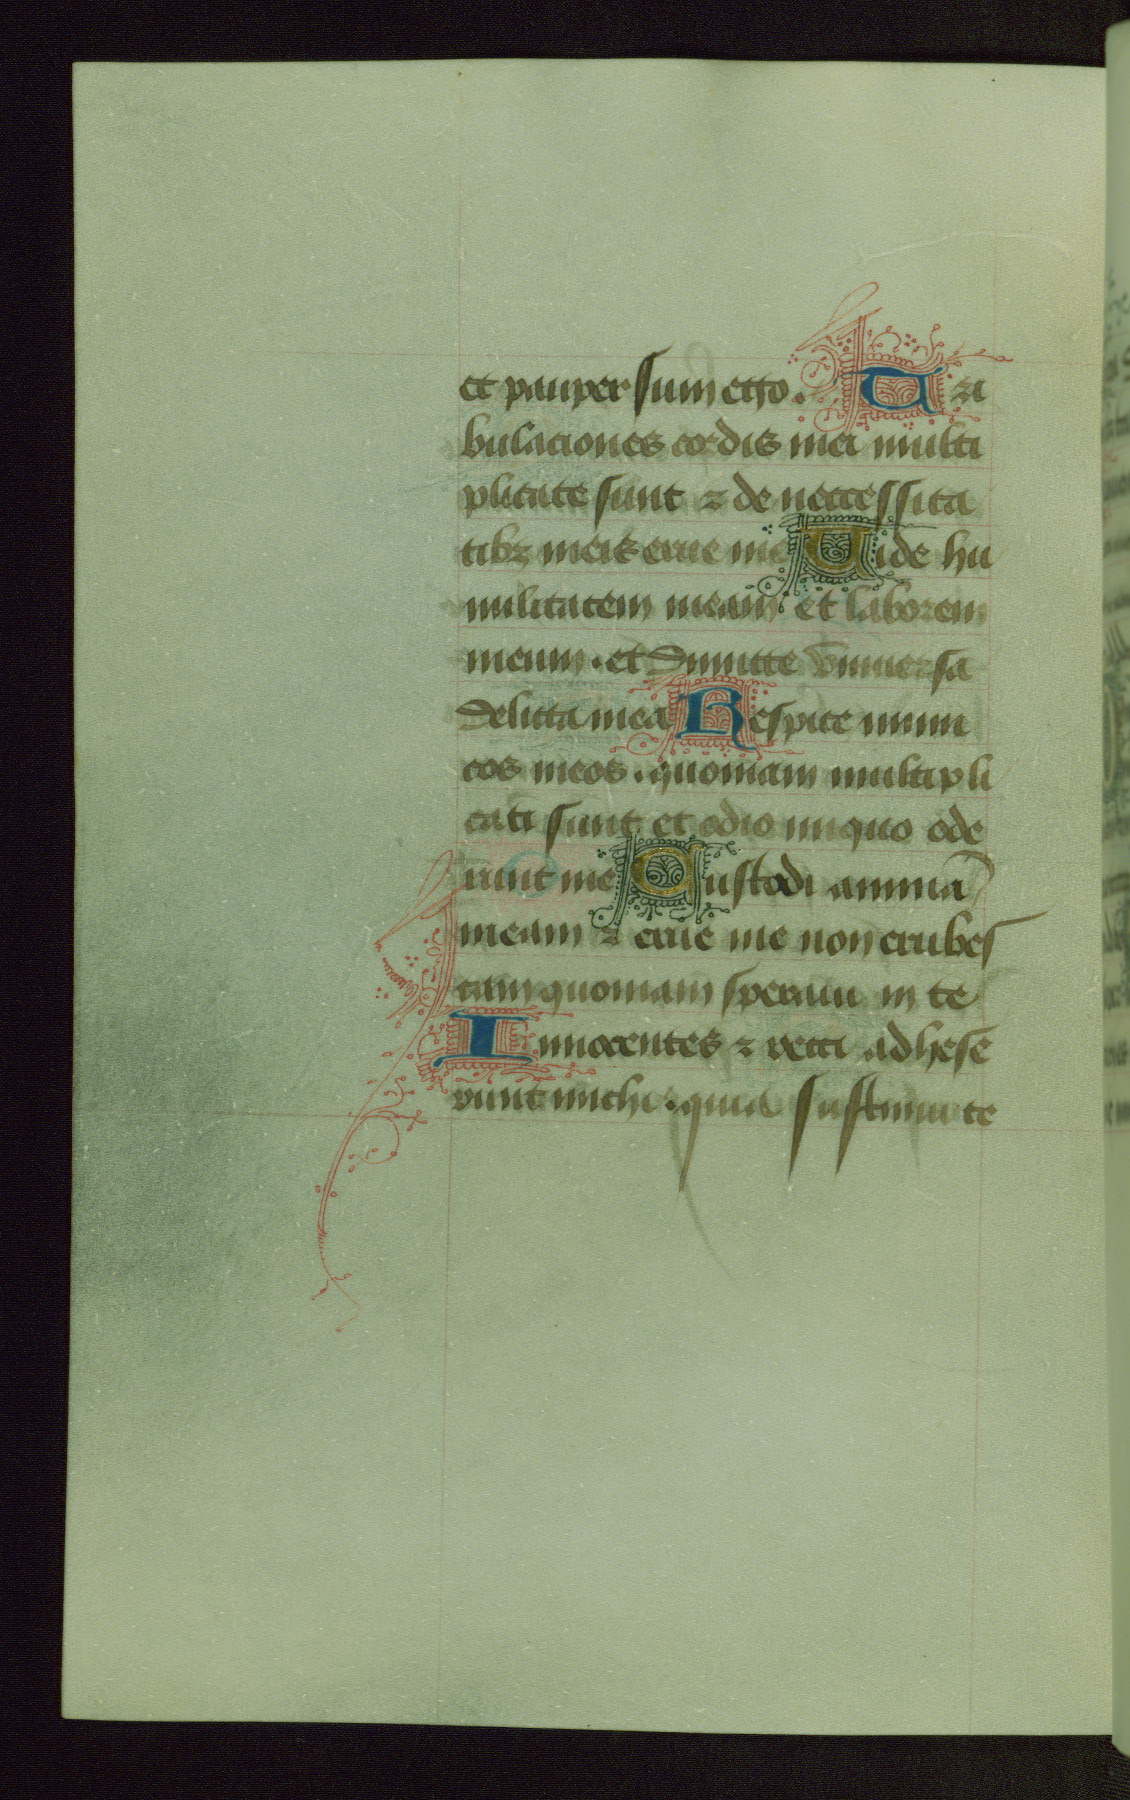 et pauper sum ego. Tri
bulaciones cordis mei multi
plicate sunt ⁊ de neccessita
tibꝫ meis erue me Vide hu
militatem meam et laborem
meum . et dimitte vniuersa
delicta mea Respice inimi
cos meos . quoniam multipli
cati sunt et odio iniquo ode
runt me Custodi animā
meam ⁊ erue me non erubes
cam quoniam speraui in te
Innocentes ⁊ recti adhese
runt michi . quia sustinui te